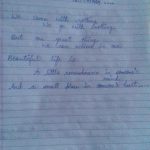 We come with nothing
We go with nothing
But one great thing
we can achieve in our
Beautiful life is
A little remembrance in someone's
mind
And a small place in someone's heart...